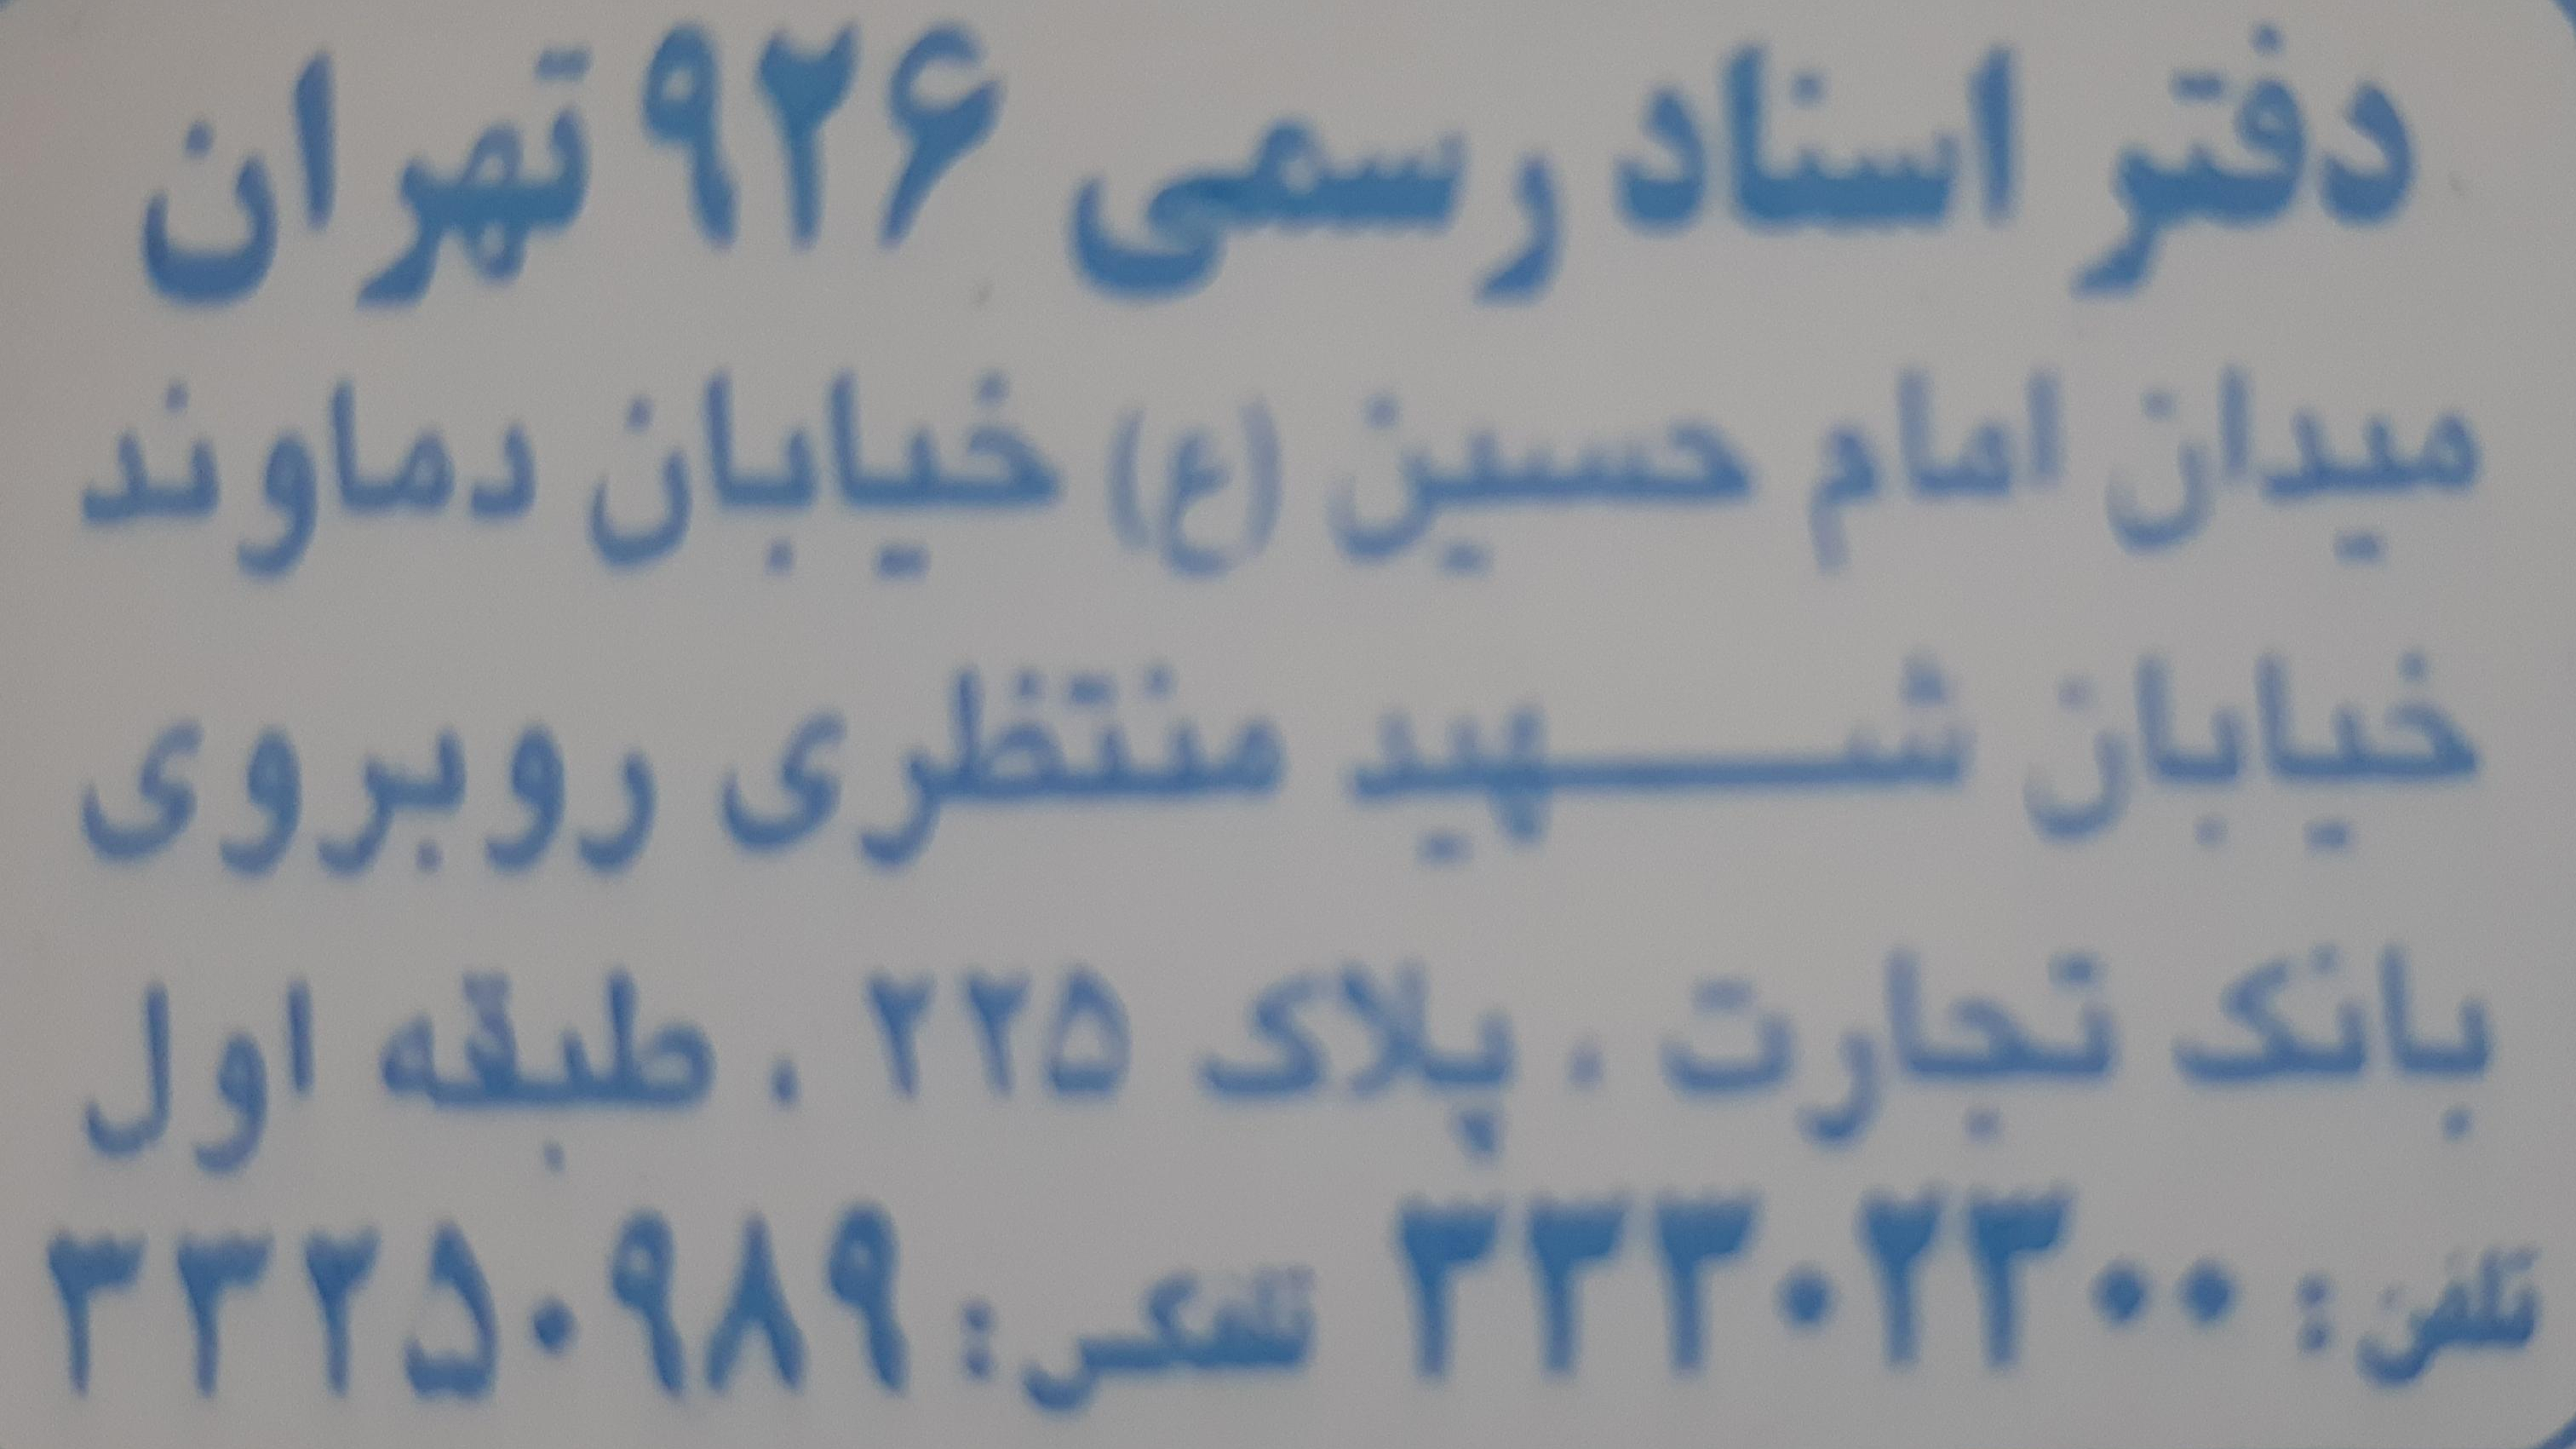 دفتر اسناد رسمی ۹۲۶ تهران
میدان امام حسین (ع) خیابان دماوند
خیابان شـــــهید منتظری روبروی
بانک تجارت ، پلاک ۲۲۵ ، طبقه اول
تلفن : ۳۳۳۰۲۳۰۰ تلفکس : ۳۳۲۵۰۹۸۹